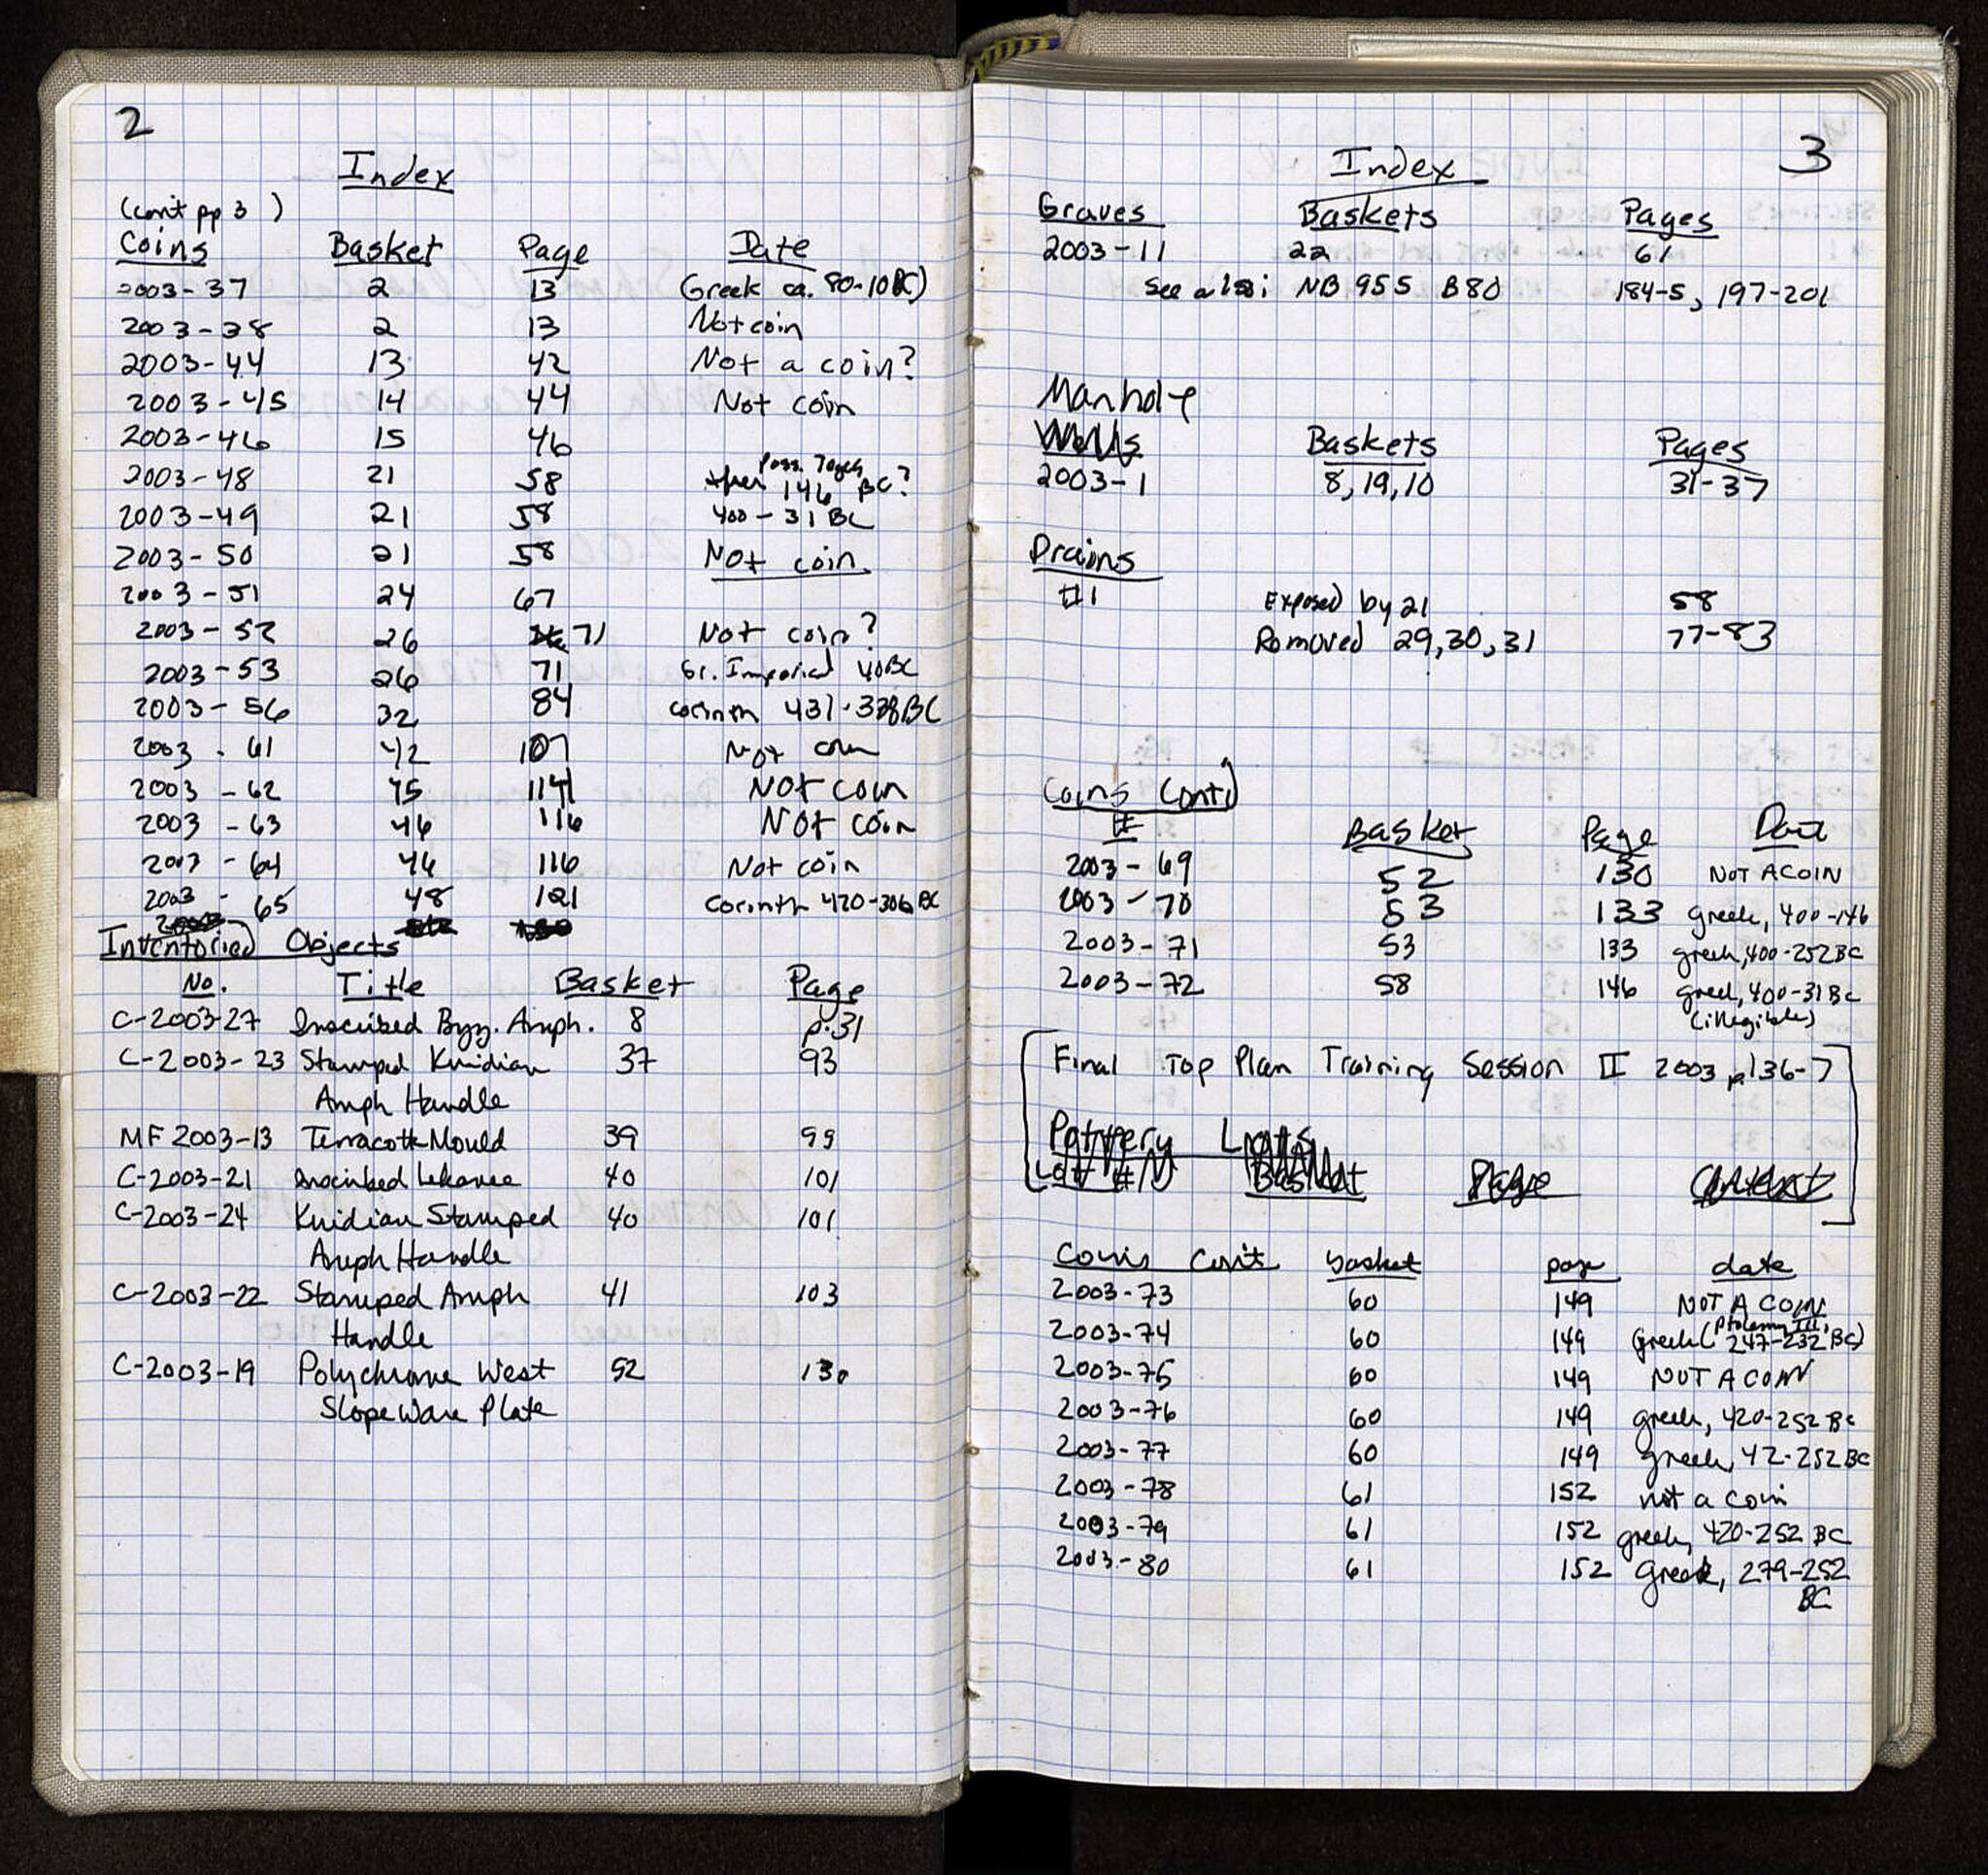 2
Index
(cont pp 3 )
Coins Basket Page Date
2003-37 2 13 (Greek ca. 80-10BC)
2003-38 2 13 Not coin
2003-44 13 42 Not a coin?
2003-45 14 44 Not coin
2003-46 15 46
2003-48 21 58 Poss. after 146 BC?
2003-49 21 58 400-31 BC
2003-50 21 58 Not coin
2003-51 24 67
2003-52 26 71 Not coin?
2003-53 26 71 Gr. Imperial 40BC
2003-56 32 84 Corinth 431-338BC
2003-61 42 107 Not coin
2003-62 45 114 Not coin
2003-63 46 116 Not coin
2003-64 46 116 Not coin
2003-65 48 121 Corinth 420-306 BC
Inventoried Objects
No. Title Basket Page
C-2003-27 Inscribed Byz. Amph. 8 p.31
C-2003-23 Stamped Knidian 37 93
Amph Handle
MF 2003-13 Terracotta Mould 39 99
C-2003-21 Inscribed Lekanee 40 101
C-2003-24 Knidian Stamped 40 101
Amph Handle
C-2003-22 Stamped Amph 41 103
Handle
C-2003-19 Polychrome West 52 130
Slope Ware Plate
3
Index
Graves Baskets Pages
2003-11 22 61
See also: NB 955 B80 184-5, 197-201
Manhole
Wells Baskets Pages
2003-1 8,19,10 31-37
Drains
#1 Exposed by 21 58
Removed 29,30,31 77-83
Coins (Cont)
# Basket Page Date
2003-69 52 130 NOT A COIN
2003-70 53 133 greek, 400-146
2003-71 53 133 greek, 400-252BC
2003-72 58 146 greek, 400-31BC
(illegible)
Final Top Plan Training Session II 2003 p.136-7
Pottery Lots
Lot # Basket Page Context
Coins Cont basket page date
2003-73 60 149 NOT A COIN
2003-74 60 149 Greek (Ptolemy III, 247-232 BC)
2003-75 60 149 NOT A COIN
2003-76 60 149 greek, 420-252 BC
2003-77 60 149 greek, 42-252 BC
2003-78 61 152 not a coin
2003-79 61 152 greek, 420-252 BC
2003-80 61 152 Greek, 279-252
BC